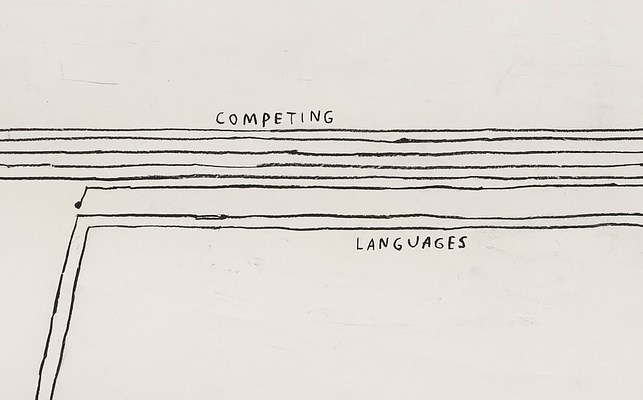 COMPETING
LANGUAGES